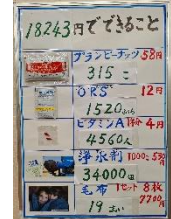 18243円でできること
プランピーナッツ 58円
315 こ
ORS 12円
1520ふくろ
ビタミンA 1粒 4円
4560人
浄水剤 1000こ 530円
34000個
毛布 1セット8枚
7700円
19